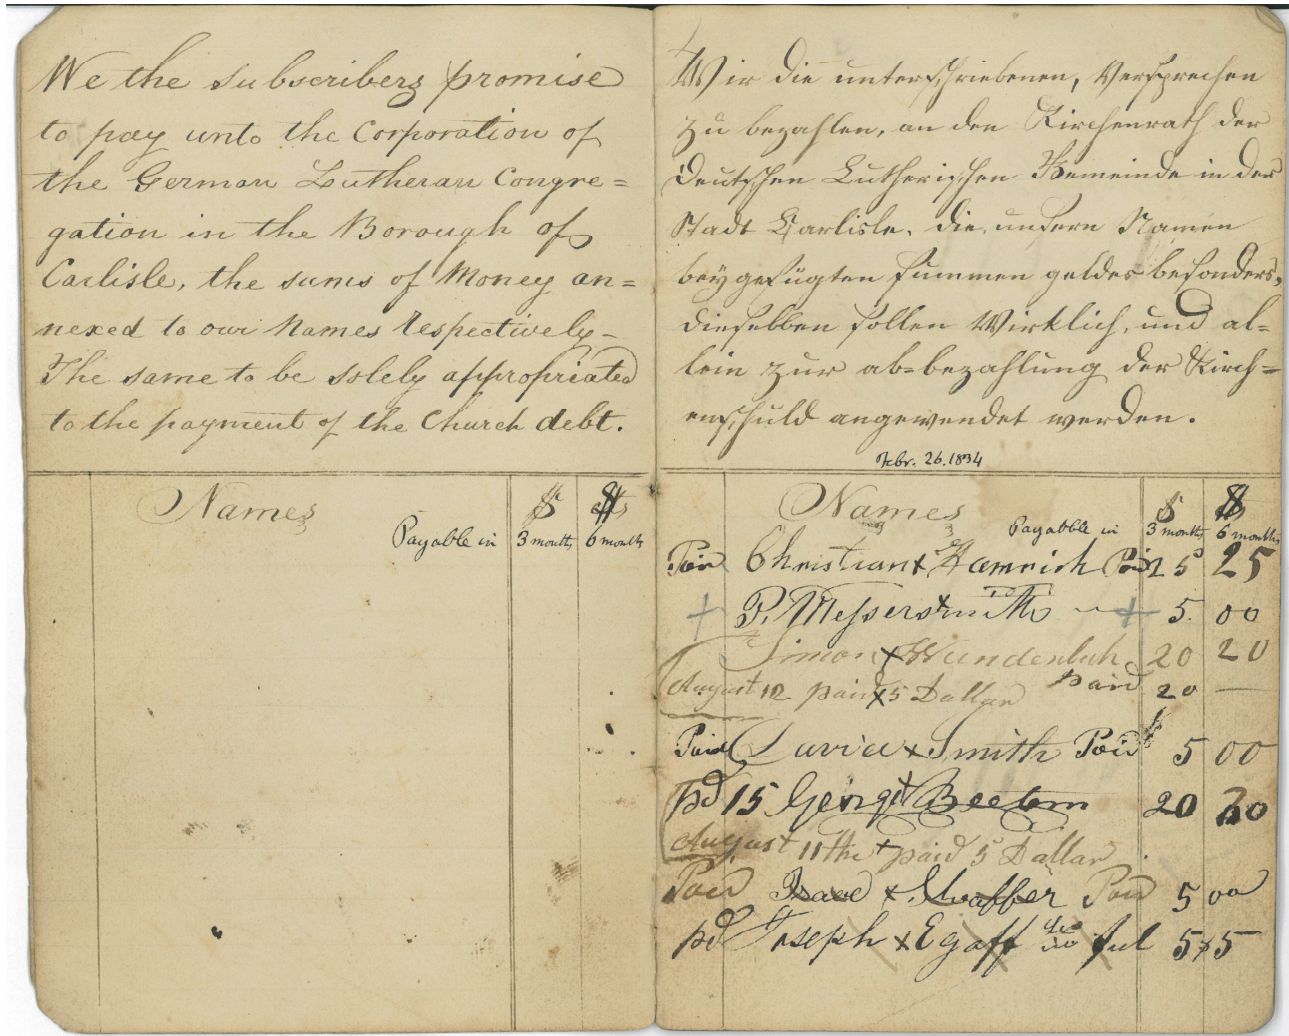 We the subscribers promise
to pay unto the Corporation of
the German Lutheran Congre=
gation in the Borough of
Carlisle, the sums of Money an=
nexed to our Names respectively-
The same to be solely appropriated
to the payment of the Church debt.
Names $ $
Payabble in 3 months 6 months
Wir die unterschriebenen, Versprechen
zu bezahlen, an den Kirchenrath der
Deutschen Lutherischen Gemeinde in der
Stadt Carlisle, die unsern Namen
beygefügten summen geldes besonders,
dieselben sollen Wirklich, und al=
lein zur ab=bezahlung der Kirch=
enschuld angewendet werden.
Febr. 26. 1834
Names $ $
Payabble in 3 months 6 months
Paid Christian x Paid 25 25
P. Messersmith 5. 00
Simon x Wunderlich 20 20
August 12 paid x 5 Dollar paid 20 —
Paid David x Smith Paid 5 00
pd 15 George Beetem 20 20
August 11 the + paid 5 Dollar
Paid Isaac x Paid 5 00
pd Joseph x Egolff ful 5 x 5